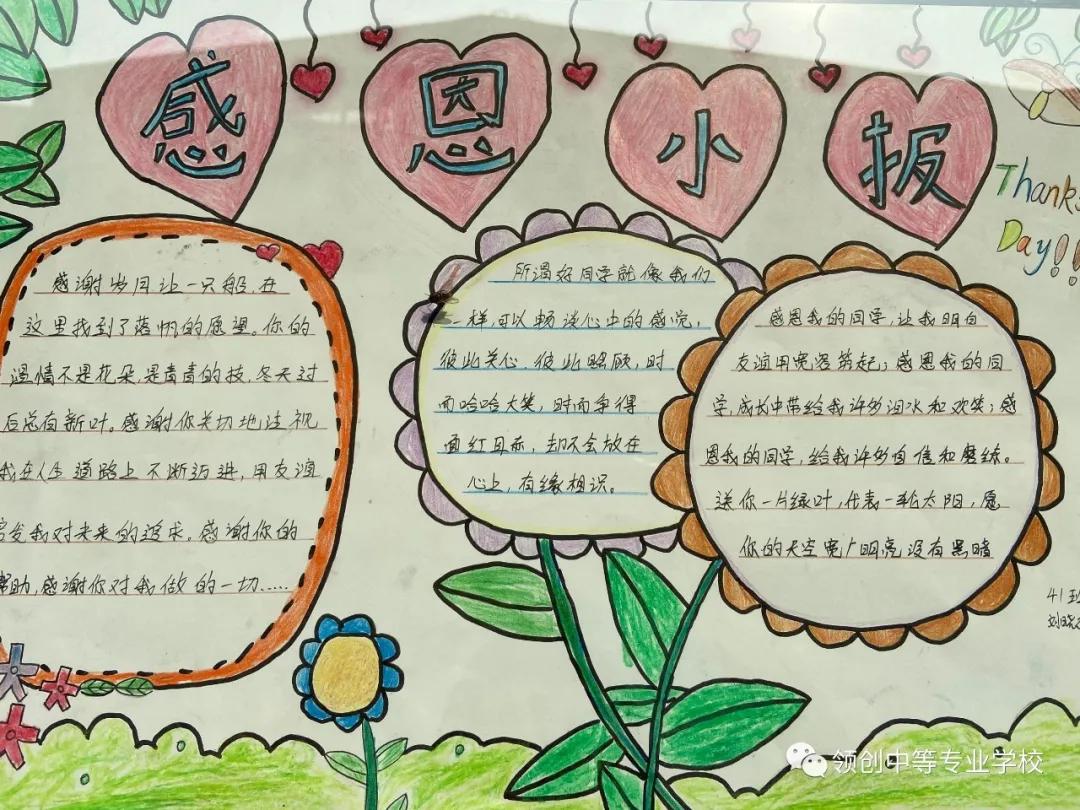 感恩小报
Thanks
Day!!
感谢岁月让一只船,在
这里找到了落帆的愿望。你的
温情不是花朵,是青青的枝,冬天过
后总有新叶。感谢你关切地注视
我在人生道路上不断迈进,用友谊
发我对未来的追求。感谢你的
帮助,感谢你对我做的一切……
所谓好同学就像我们
一样,可以畅谈心中的感觉,
彼此关心 彼此照顾,时
而哈哈大笑,时而争得
面红耳赤,却不会放在
心上,有缘相识。
感恩我的同学,让我明白
友谊用宽容筑起;感恩我的同
学,成长中带给我许多泪水和欢笑;感
恩我的同学,给我许多自信和磨练。
送你一片绿叶,代表一轮太阳,愿
你的天空宽广明亮,没有黑暗
41班
刘晓
领创中等专业学校